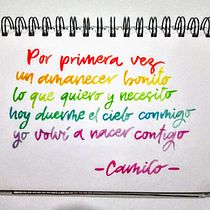 Por primera vez
un amanecer bonito
lo que quiero y necesito
hoy duerme el cielo conmigo
yo volví a nacer contigo
- Camilo -